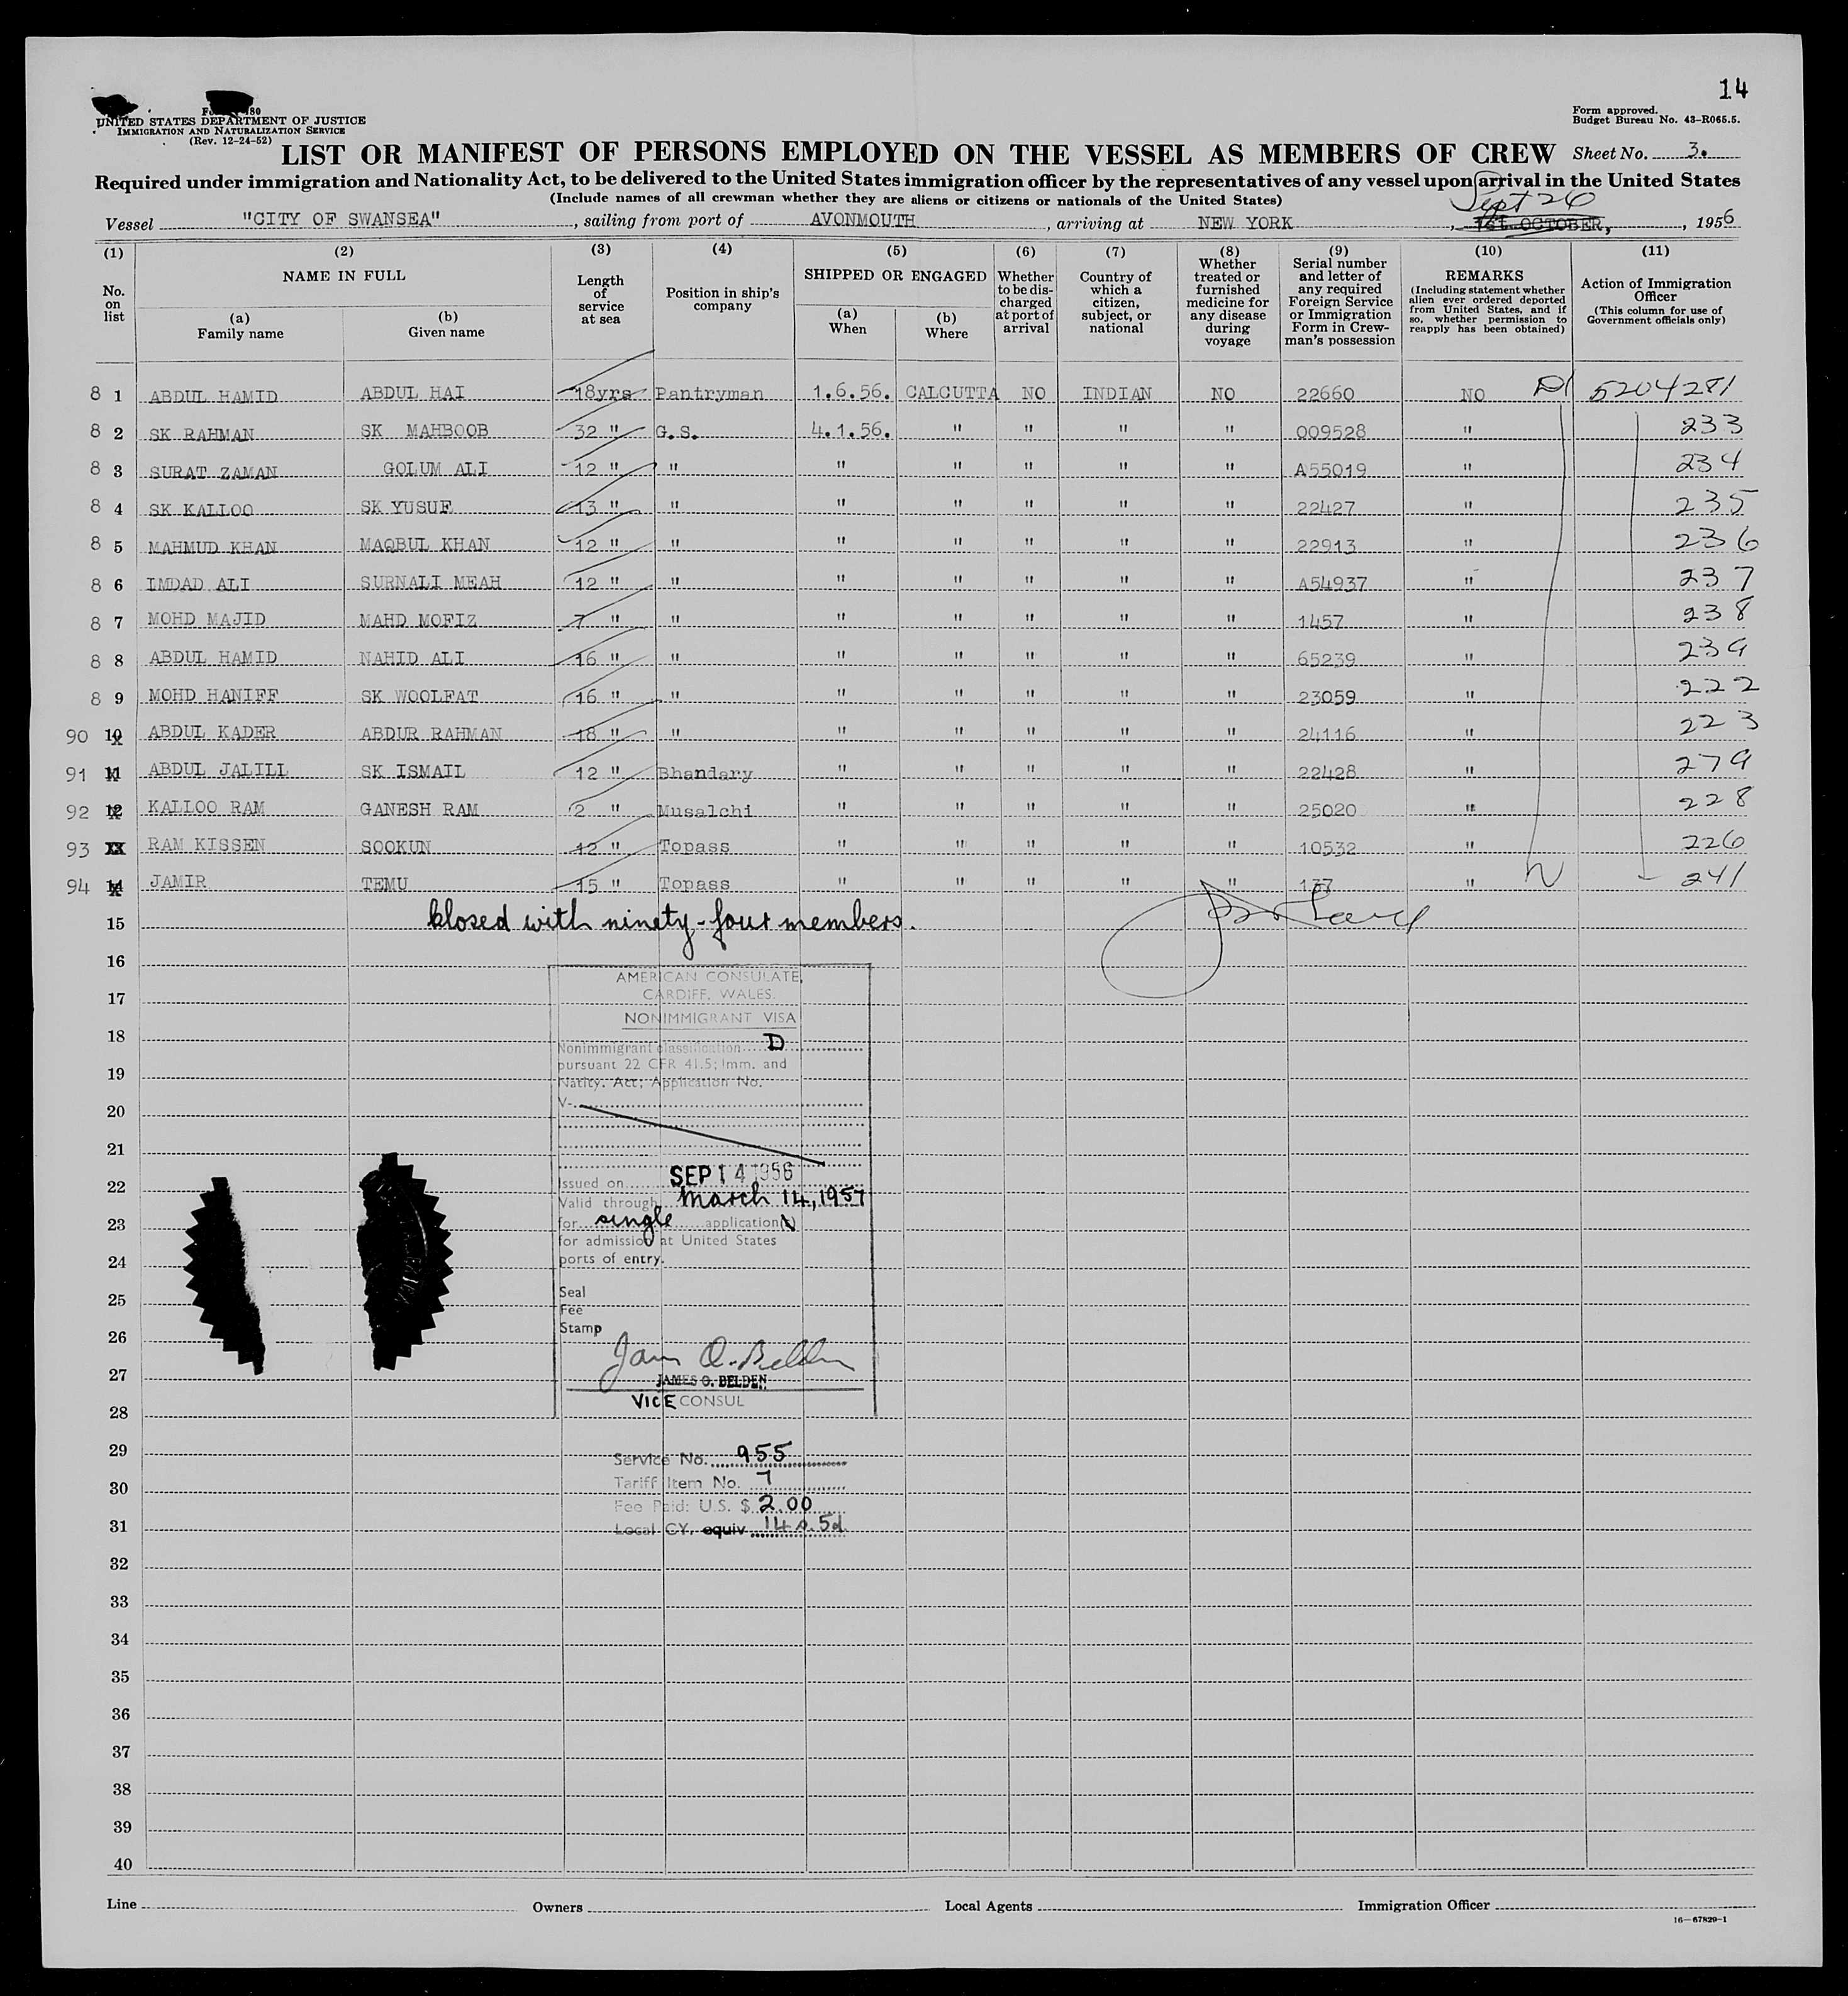 14
UNITED STATES DEPARTMENT OF JUSTICE
IMMIGRATION AND NATURALIZATION SERVICE
(Rev. 12-24-52)
Form approved.
Budget Bureau No. 43-R065.5.
LIST OR MANIFEST OF PERSONS EMPLOYED ON THE VESSEL AS MEMBERS OF CREW Sheet No. 3.
Required under immigration and Nationality Act, to be delivered to the United States immigration officer by the representatives of any vessel upon arrival in the United States
(Include names of all crewman whether they are aliens or citizens or nationals of the United States)
Sept 26
Vessel "CITY OF SWANSEA", sailing from port of AVONMOUTH, arriving at NEW YORK, 1st. OCTOBER, 1956
(1) (2) (3) (4) (5) (6) (7) (8) (9) (10) (11)
No. on list
NAME IN FULL
(a) Family name
(b) Given name
Length of service at sea
Position in ship's company
SHIPPED OR ENGAGED
(a) When
(b) Where
Whether to be discharged at port of arrival
Country of which a citizen, subject, or national
Whether treated or furnished medicine for any disease during voyage
Serial number and letter of any required Foreign Service or Immigration Form in Crewman's possession
REMARKS
(Including statement whether alien ever ordered deported from United States, and if so, whether permission to reapply has been obtained)
Action of Immigration Officer
(This column for use of Government officials only)
8 1 ABDUL HAMID ABDUL HAI 18yrs Pantryman 1.6.56. CALCUTTA NO INDIAN NO 22660 NO D1 5204281
8 2 SK RAHMAN SK MAHBOOB 32 " G.S. 4.1.56. " " " " 009528 " 233
8 3 SURAT ZAMAN GOLUM ALI 12 " " " " " " " A55019 " 234
8 4 SK KALLOO SK YUSUF 13 " " " " " " " 22427 " 235
8 5 MAHMUD KHAN MAQBUL KHAN 12 " " " " " " " 22913 " 236
8 6 IMDAD ALI SURNALI MEAH 12 " " " " " " " A54937 " 237
8 7 MOHD MAJID MAHD MOFIZ 7 " " " " " " " 1457 " 238
8 8 ABDUL HAMID NAHID ALI 16 " " " " " " " 65239 " 239
8 9 MOHD HANIFF SK WOOLFAT 16 " " " " " " " 23059 " 222
90 10 ABDUL KADER ABDUR RAHMAN 18 " " " " " " " 24116 " 223
91 11 ABDUL JALILL SK ISMAIL 12 " Bhandary " " " " " 22428 " 279
92 12 KALLOO RAM GANESH RAM 2 " Musalchi " " " " " 25020 " 228
93 RAM KISSEN SOOKUN 12 " Topass " " " " " 10532 " 226
94 14 JAMIR TEMU 15 " Topass " " " " " 137 " 241
15 klosed with ninety-four members.
16
AMERICAN CONSULATE,
CARDIFF, WALES.
17
NONIMMIGRANT VISA
18
Nonimmigrant classification D
pursuant 22 CFR 41.5; Imm. and
19
Natlty. Act; Application No.
V-
20
21
Issued on SEP 14 1956
22
Valid through March 14, 1957
23
for single application(s)
for admission at United States
24
ports of entry.
25
Seal
Fee
26
Stamp
27
JAMES O. BELDEN
VICE CONSUL
28
29
Service No. 955
30
Tariff Item No. 7
Fee Paid: U.S. $ 2.00
31
Local CY. equiv 14s. 5d.
32
33
34
35
36
37
38
39
40
Line Owners Local Agents Immigration Officer
16—67829-1